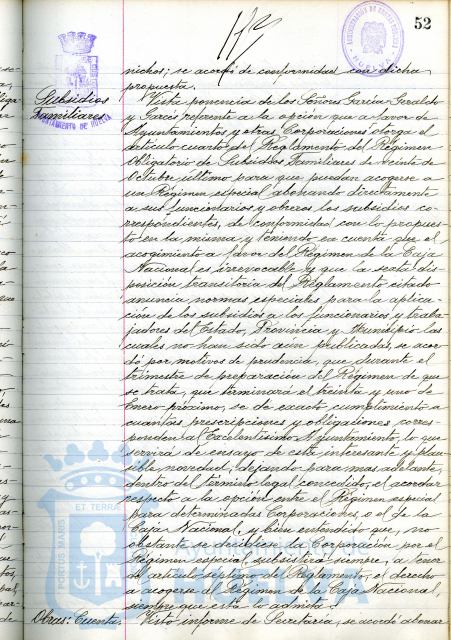 52
nichos; se acordó de conformidad con dicha
propuesta.
Subsidios
Familiares
AYUNTAMIENTO DE HUELVA
Vista ponencia de los Señores García-Geraldo
y Garcés referente a la opción que a favor de
Ayuntamientos y otras Corporaciones otorga el
artículo cuarto del Reglamento del Régimen
Obligatorio de Subsidios Familiares de veinte de
Octubre último para que puedan acogerse a
un Régimen especial abonando directamente
a sus funcionarios y obreros los subsidios co-
rrespondientes, de conformidad con lo propues-
to en la misma y teniendo en cuenta que el
acogimiento a favor del Régimen de la Caja
Nacional es irrevocable y que la sexta dis-
posición transitoria del Reglamento citado
anuncia normas especiales para la aplica-
ción de los subsidios a los funcionarios y traba-
jadores del Estado, Provincia y Municipio las
cuales no han sido aún publicadas, se acor-
dó por motivos de prudencia, que durante el
trimestre de preparación del Régimen de que
se trata, que terminará el treinta y uno de
Enero próximo, se de exacto cumplimiento a
cuantas prescripciones y obligaciones corres-
ponden al Excelentísimo Ayuntamiento, lo que
servirá de ensayo de esta interesante y plau-
sible novedad, dejando para mas adelante,
dentro del término legal concedido, el acordar
respecto a la opción entre el Régimen especial
para determinadas Corporaciones, o el de la
Caja Nacional, y bien entendido que, no
obstante se decidiera la Corporación por el
Régimen especial subsistirá siempre, a tenor
del artículo séptimo del Reglamento, el derecho
a acogerse al Régimen de la Caja Nacional,
siempre que esta lo admita.
Obras: Cuenta.
Visto informe de Secretaría, se acordó abonar
PORTUS MARIS ET TERRAE
Ayuntamiento de
HUELVA